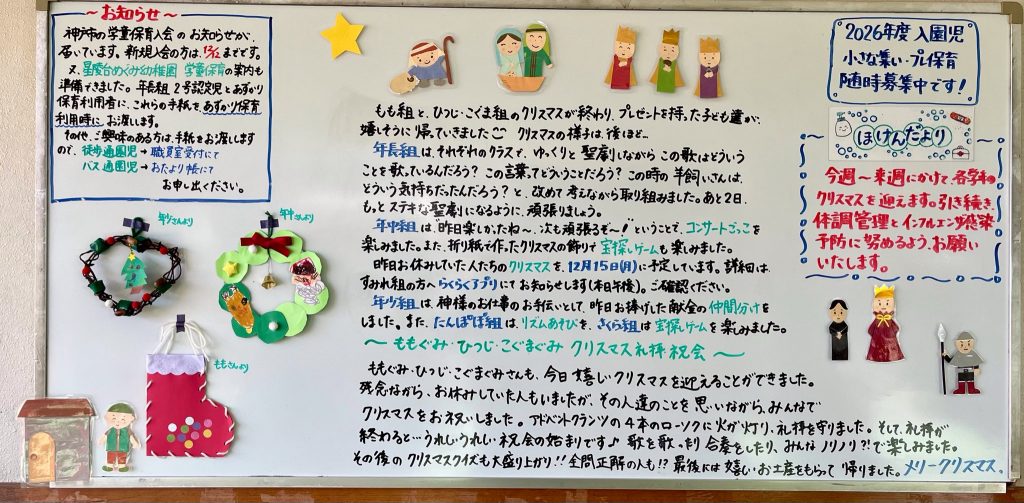 ～お知らせ～
神戸市の学童保育入会のお知らせが、
届いています。新規入会の方は、12/12までです。
又、星陵台めぐみ幼稚園 学童保育の案内も
準備できました。年長組2号認定児とあずかり
保育利用者に、これらの手紙を、あずかり保育
利用時に、お渡します。
その他、ご興味のある方は、手紙をお渡しします
ので、徒歩通園児→職員室受付にて
バス通園児→おたより帳にて
お申し出ください。
年少さんより
年中さんより
ももさんより
もも組と、ひつじ・こぐま組のクリスマスが終わり、プレゼントを持った子ども達が、
嬉しそうに帰っていきました クリスマスの様子は、後ほど…
年長組は、それぞれのクラスで、ゆっくりと聖劇しながらこの歌はどういう
ことを歌っているんだろう？この言葉ってどういうことだろう？この時の羊飼いさんは、
どういう気持ちだったんだろう？と、改めて考えながら取り組みました。あと2日、
もっとステキな聖劇になるように、頑張りましょう。
年中組は、"昨日楽しかったね～、次も頑張るぞ～！"ということで、コンサートごっこを
楽しみました。また、折り紙で作ったクリスマスの飾りで宝探しゲームも楽しみました。
昨日お休みしていた人たちのクリスマスを、12月15日(月)に予定しています。詳細は、
すみれ組の方へらくらくアプリにてお知らせします(本日午後)。ご確認ください。
年少組は、神様のお仕事のお手伝いとして、昨日お捧げした献金の仲間分けを
しました。また、たんぽぽ組は、リズムあそびを、さくら組は宝探しゲームを楽しみました。
～ももぐみ・ひつじ・こぐまぐみ クリスマス礼拝・祝会～
ももぐみ・ひつじ・こぐまぐみさんも、今日嬉しいクリスマスを迎えることができました。
残念ながら、お休みしていた人もいましたが、その人達のことを思いながら、みんなで
クリスマスをお祝いしました。アドベントクランツの4本のローソクに火が灯り、礼拝を守りました。そして、礼拝が
終わると…うれしいうれしい祝会の始まりです♪歌を歌ったり合奏をしたり、みんなノリノリ?!で楽しみました。
その後のクリスマスクイズも大盛り上がり!!全問正解の人も!?最後には嬉しいお土産をもらって帰りました。メリークリスマス、
2026年度 入園児
小さな集い・プレ保育
随時募集中です！
ほけんだより
今週～来週にかけて、各学年の
クリスマスを迎えます。引き続き、
体調管理とインフルエンザ感染
予防に努めるよう、お願い
いたします。